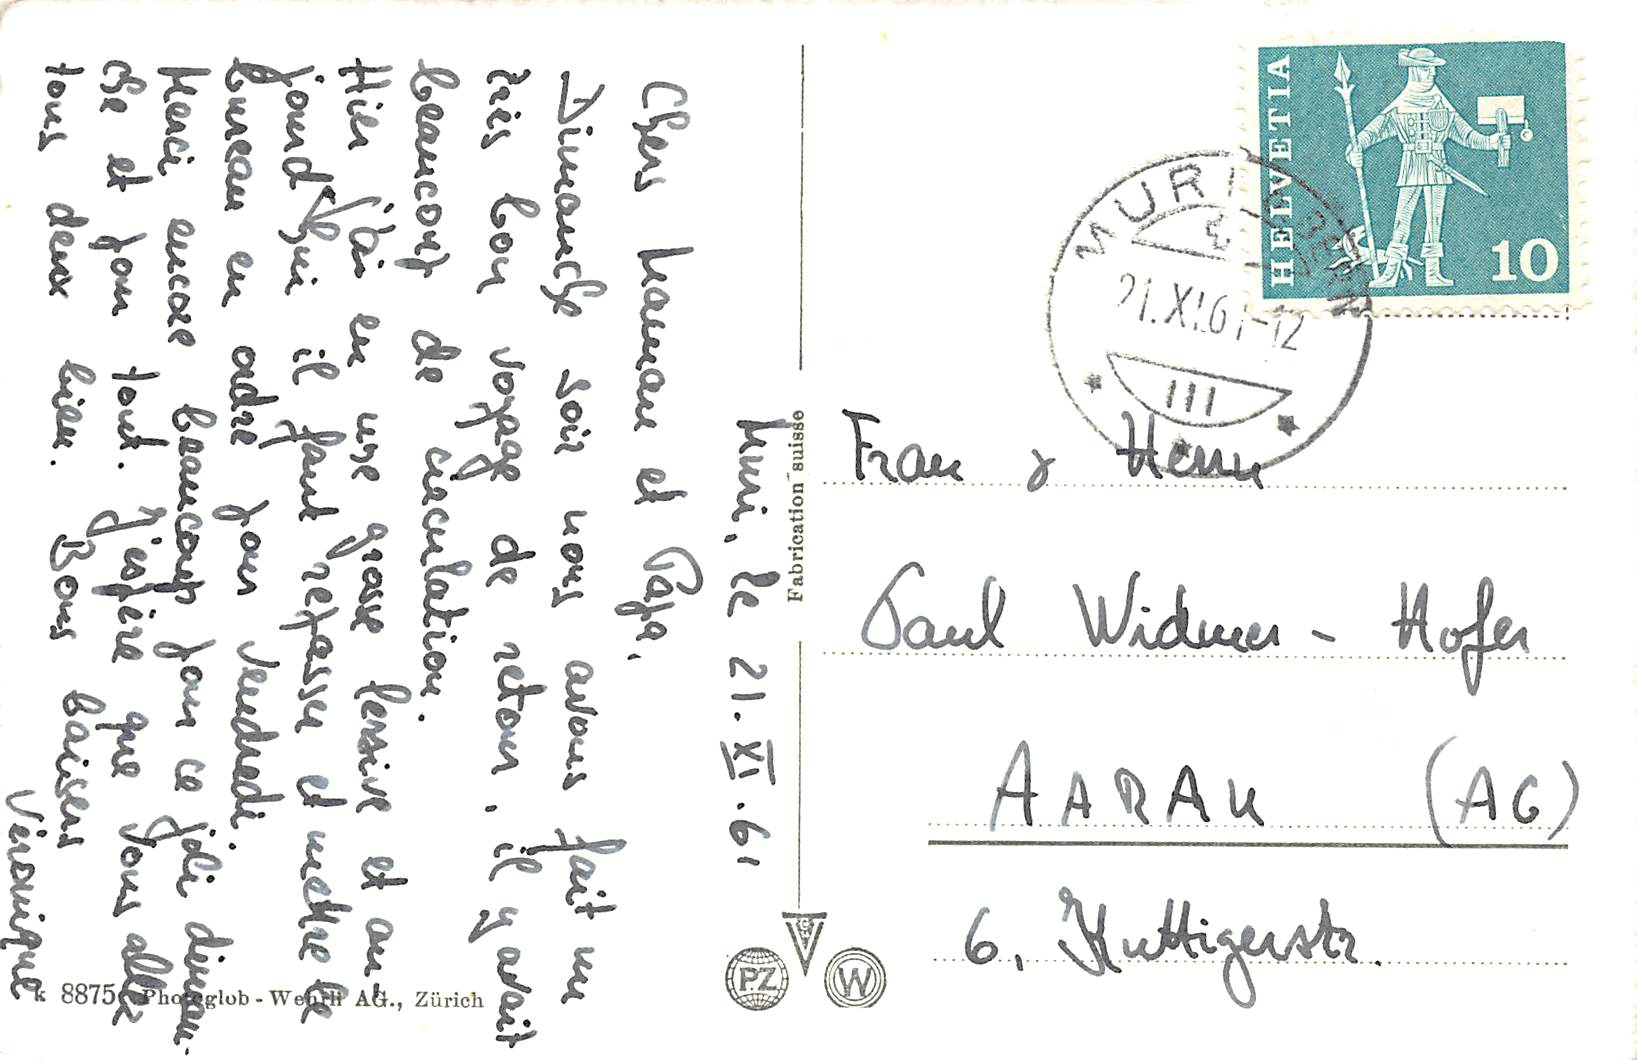 Muri, le 21.XI.61
Chers Maman et Papa,
Dimanche soir nous avons fait un
très bon voyage de retour, il y avait
beaucoup de circulation.
Hier j'ai eu une grosse lessive et au-
jourd'hui il faut repasser et mettre le
bureau en ordre pour vendredi.
Merci encore beaucoup pour ce joli diman-
che et pour tout. J'espère que vous allez
tous deux bien. Bons baisers
Véronique
K 8875 Photoglob-Wehrli AG., Zürich
Fabrication suisse
PZ
W
HELVETIA
10
MURI b. BERN
21.XI.61-12
III
Frau & Herrn
Paul Widmer - Hofer
AARAU (AG)
6, Küttigerstr.